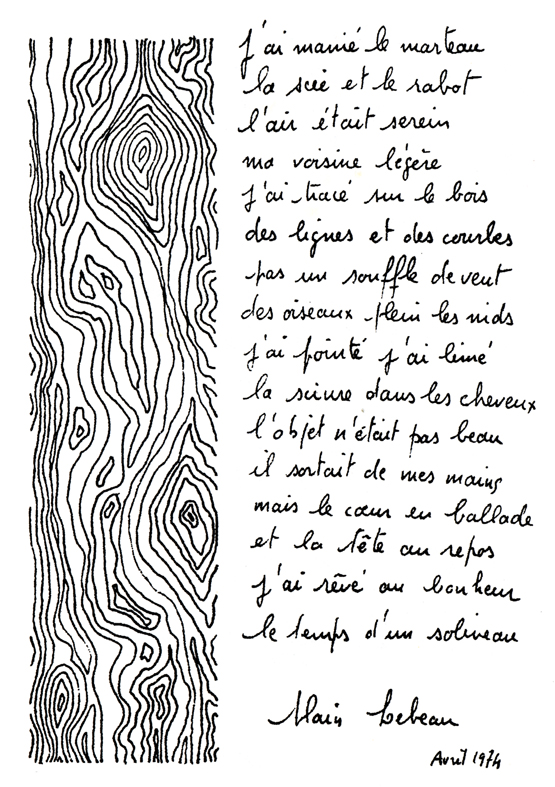 j'ai manié le marteau
la scie et le rabot
l'air était serein
ma voisine légère
j'ai tracé sur le bois
des lignes et des courbes
pas un souffle de vent
des oiseaux plein les nids
j'ai pointé j'ai limé
la sciure dans les cheveux
l'objet n'était pas beau
il sortait de mes mains
mais le cœur en ballade
et la tête au repos
j'ai rêvé au bonheur
le temps d'un soliveau
Alain Lebeau
Avril 1974